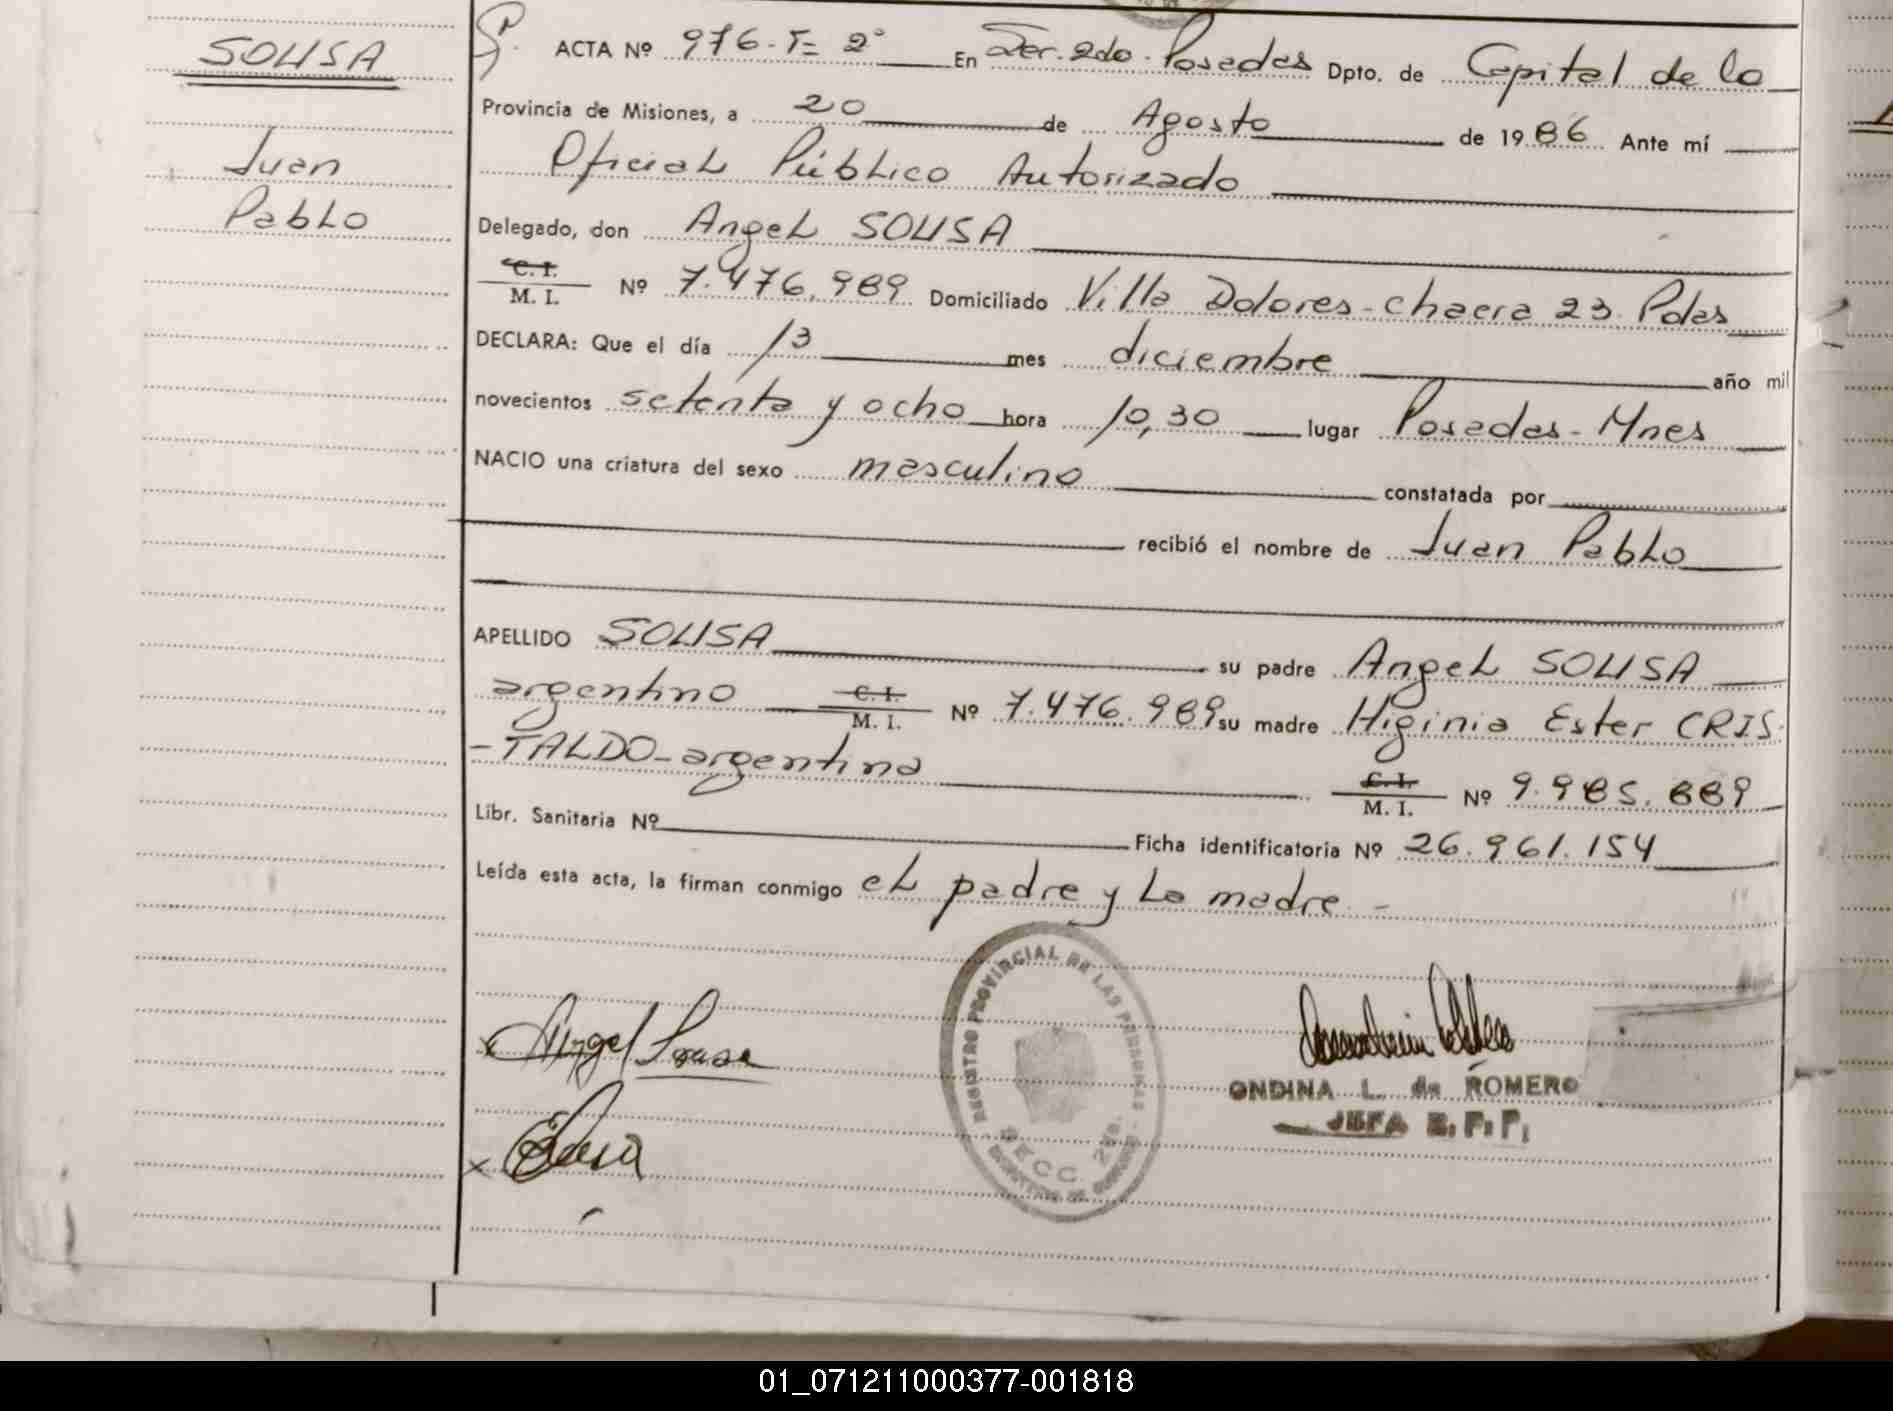 SOUSA
Juan
Pablo
ACTA Nº 976-T= 2° En Ser. 2do. Posadas Dpto. de Capital de la
Provincia de Misiones, a 20 de Agosto de 1986 Ante mí
Oficial Público Autorizado
Delegado, don Angel SOUSA
C. I.
M. I. Nº 7.476.989 Domiciliado Villa Dolores-Chacra 23 Pdas
DECLARA: Que el día 13 mes diciembre año mil
novecientos setenta y ocho hora 10,30 lugar Posadas-Mnes
NACIO una criatura del sexo masculino constatada por
recibió el nombre de Juan Pablo
APELLIDO SOUSA su padre Angel SOUSA
argentino C. I. M. I. Nº 7.476.989 su madre Higinia Ester CRIS-
-TALDO-argentina C. I. M. I. Nº 9.985.889
Libr. Sanitaria Nº Ficha identificatoria Nº 26.961.154
Leída esta acta, la firman conmigo el padre y la madre -
x Angel Sousa
x
REGISTRO PROVINCIAL DE LAS PERSONAS
SECC. 2da.
ONDINA L. de ROMERO
JEFA
01_071211000377-001818